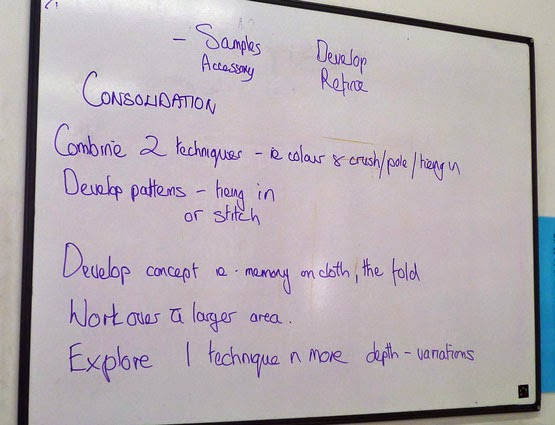 - Samples Develop
Accessory Refine
CONSOLIDATION
Combine 2 techniques - ie colour & crush/pole/
Develop patterns - in
or stitch
Develop concept ie. memory on cloth, the fold
Work over a larger area.
Explore 1 technique n more depth - variations